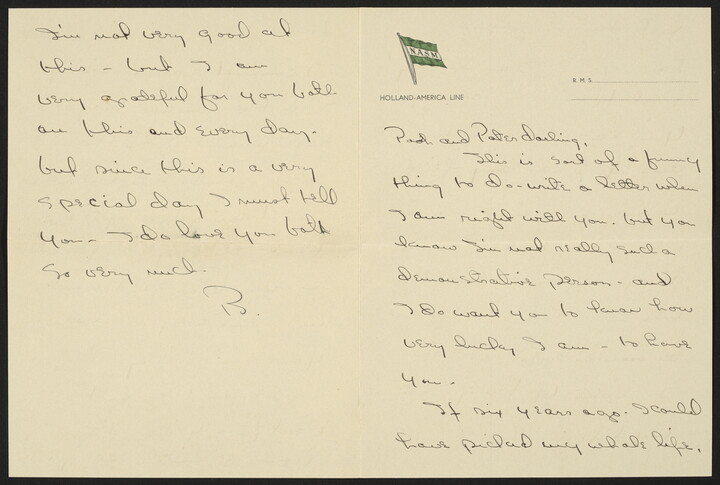 NASM
HOLLAND-AMERICA LINE
R M S
and Peter darling,
This is sort of a funny
thing to do - write a letter when
I am right with you. but you
know I'm not really such a
demonstrative person - and
I do want you to know how
very lucky I am - to have
you -
If six years ago. I could
have picked my whole life,
I'm not very good at
this - but I am
very grateful for you both
on this and every day -
but since this is a very
special day I must tell
you - I do love you both
so very much.
B.